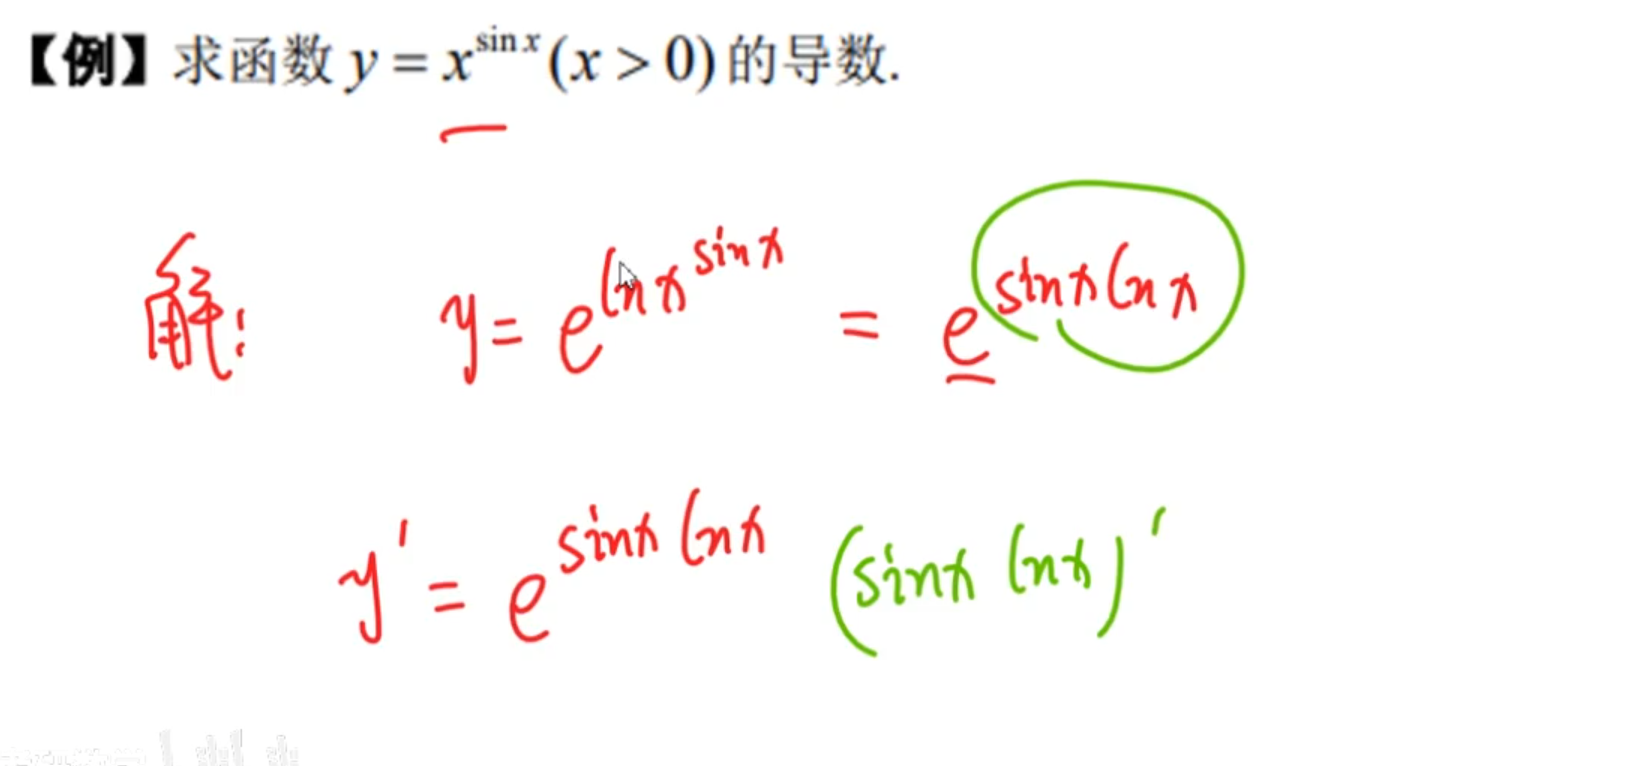 【例】求函数 y = x^{sin x} (x > 0) 的导数.
解: y = e^{ln x^{sin x}} = e^{sin x ln x}
y' = e^{sin x ln x} (sin x ln x)'